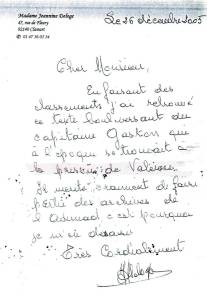 Madame Jeannine Deloge
47, rue de Fleury
92140 Clamart
Le 26 décembre 2005
Cher Monsieur,
En faisant des
classements j'ai retrouvé
ce texte bouleversant du
capitaine Gaston qui
à l'époque se trouvait à
la prison de Valence.
Il mérite vraiment de faire
partie des archives de
l'
c'est pourquoi
je m'en
Très Cordialement